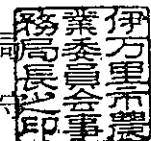 伊万里市農
業委員会事
務局長之印